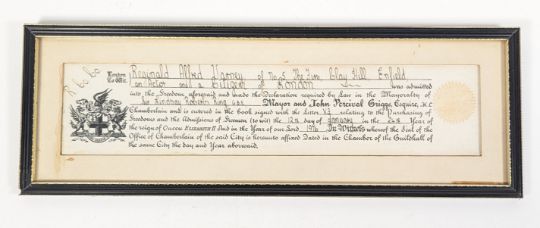 London
to Wit.
Reginald Alfred Varney of No. 5 The Firs Clay Hill Enfield
an Actor and a Citizen of London was admitted
into the Freedom aforesaid and made the Declaration required by Law in the Mayoralty of
Sir Lindsay Roberts Ring GBE Mayor and John Percival Griggs Esquire, M.C
Chamberlain and is entered in the book signed with the Letter relating to the Purchasing of
Freedoms and the Admissions of Freemen to wit the 12th day of January in the Year of
the reign of Queen ELIZABETH II And in the Year of our Lord 1976 In Witness whereof the Seal of the
Office of Chamberlain of the said City is hereunto affixed Dated in the Chamber of the Guildhall of
the same City the day and Year aforesaid.